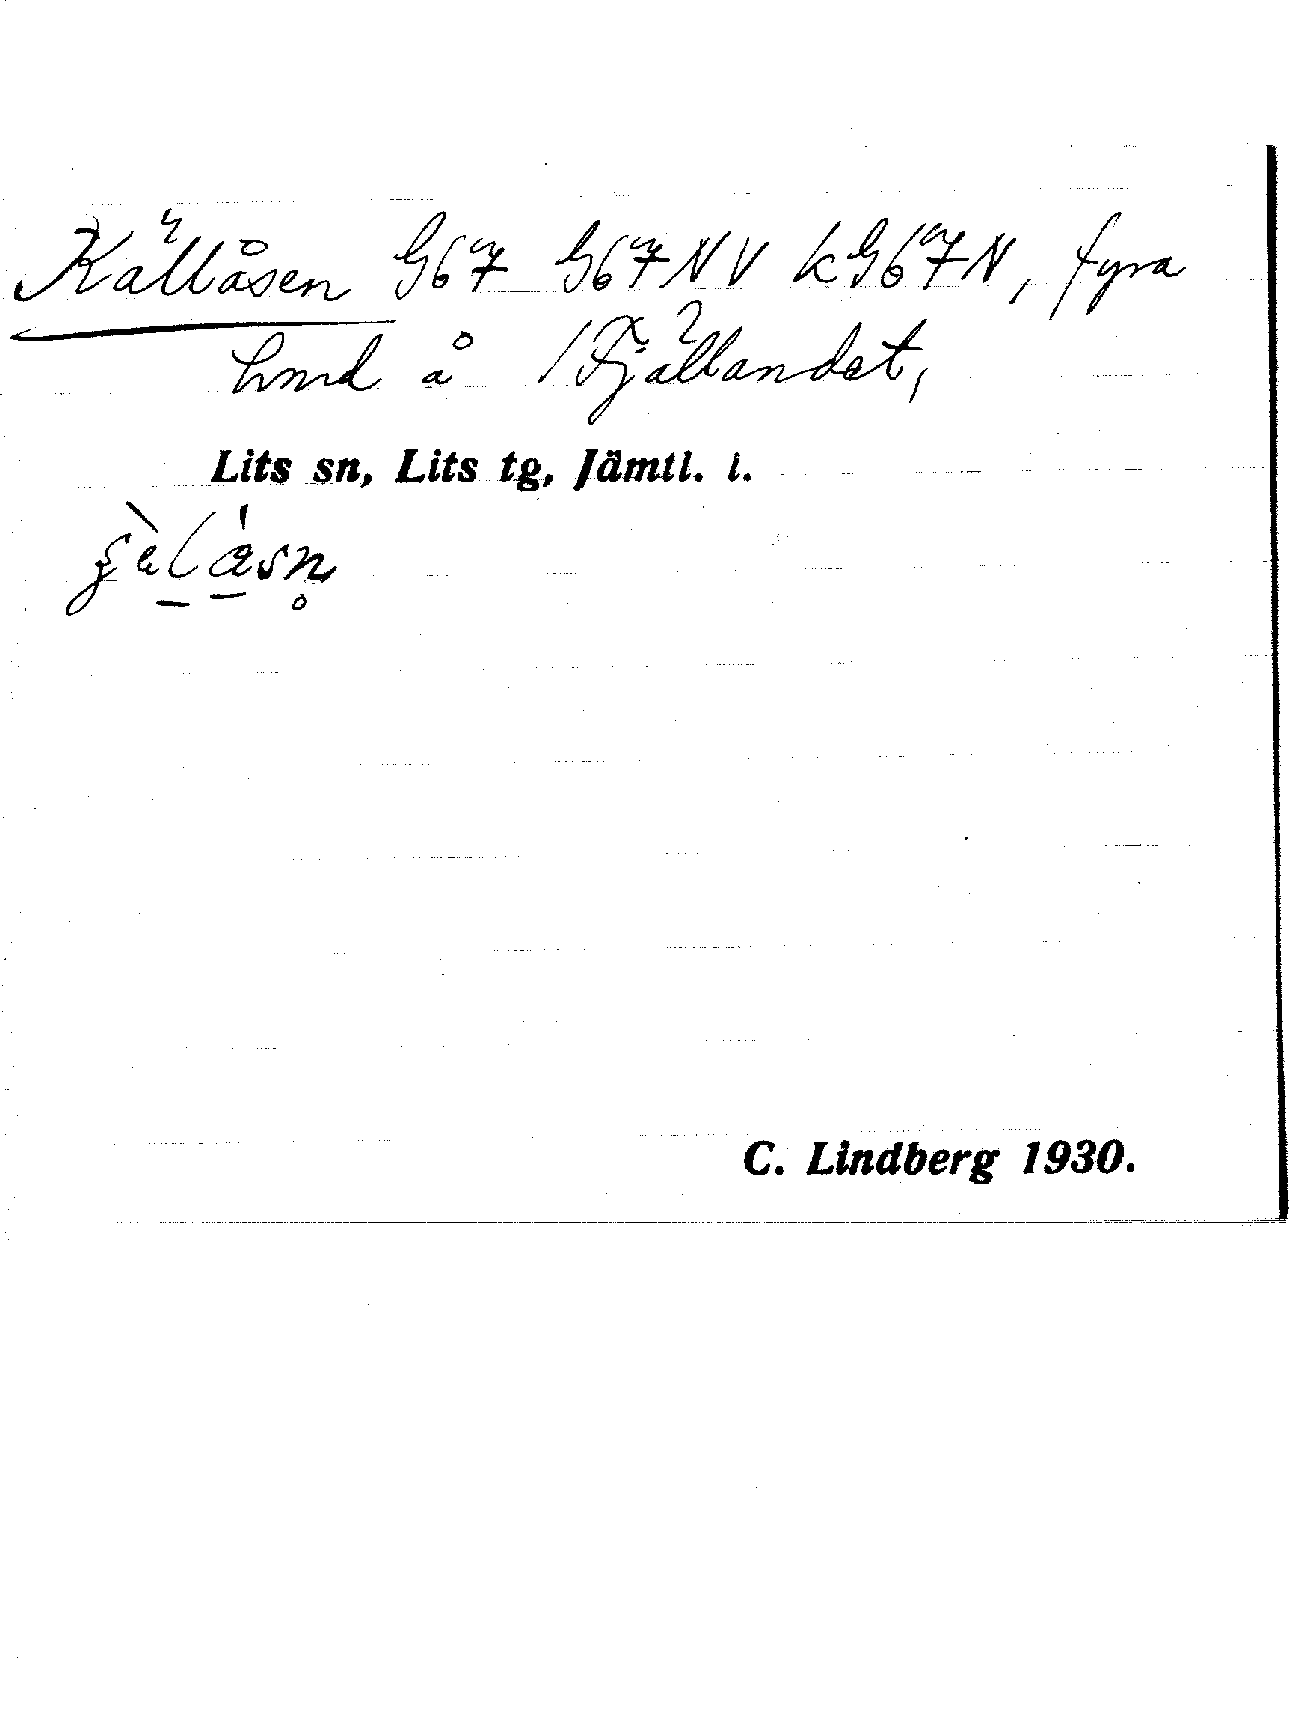 Källåsen G67 G67NV kG67N, fyra
hmd å /Fjällandet,
Lits sn, Lits tg, Jämtl. l.
C. Lindberg 1930.